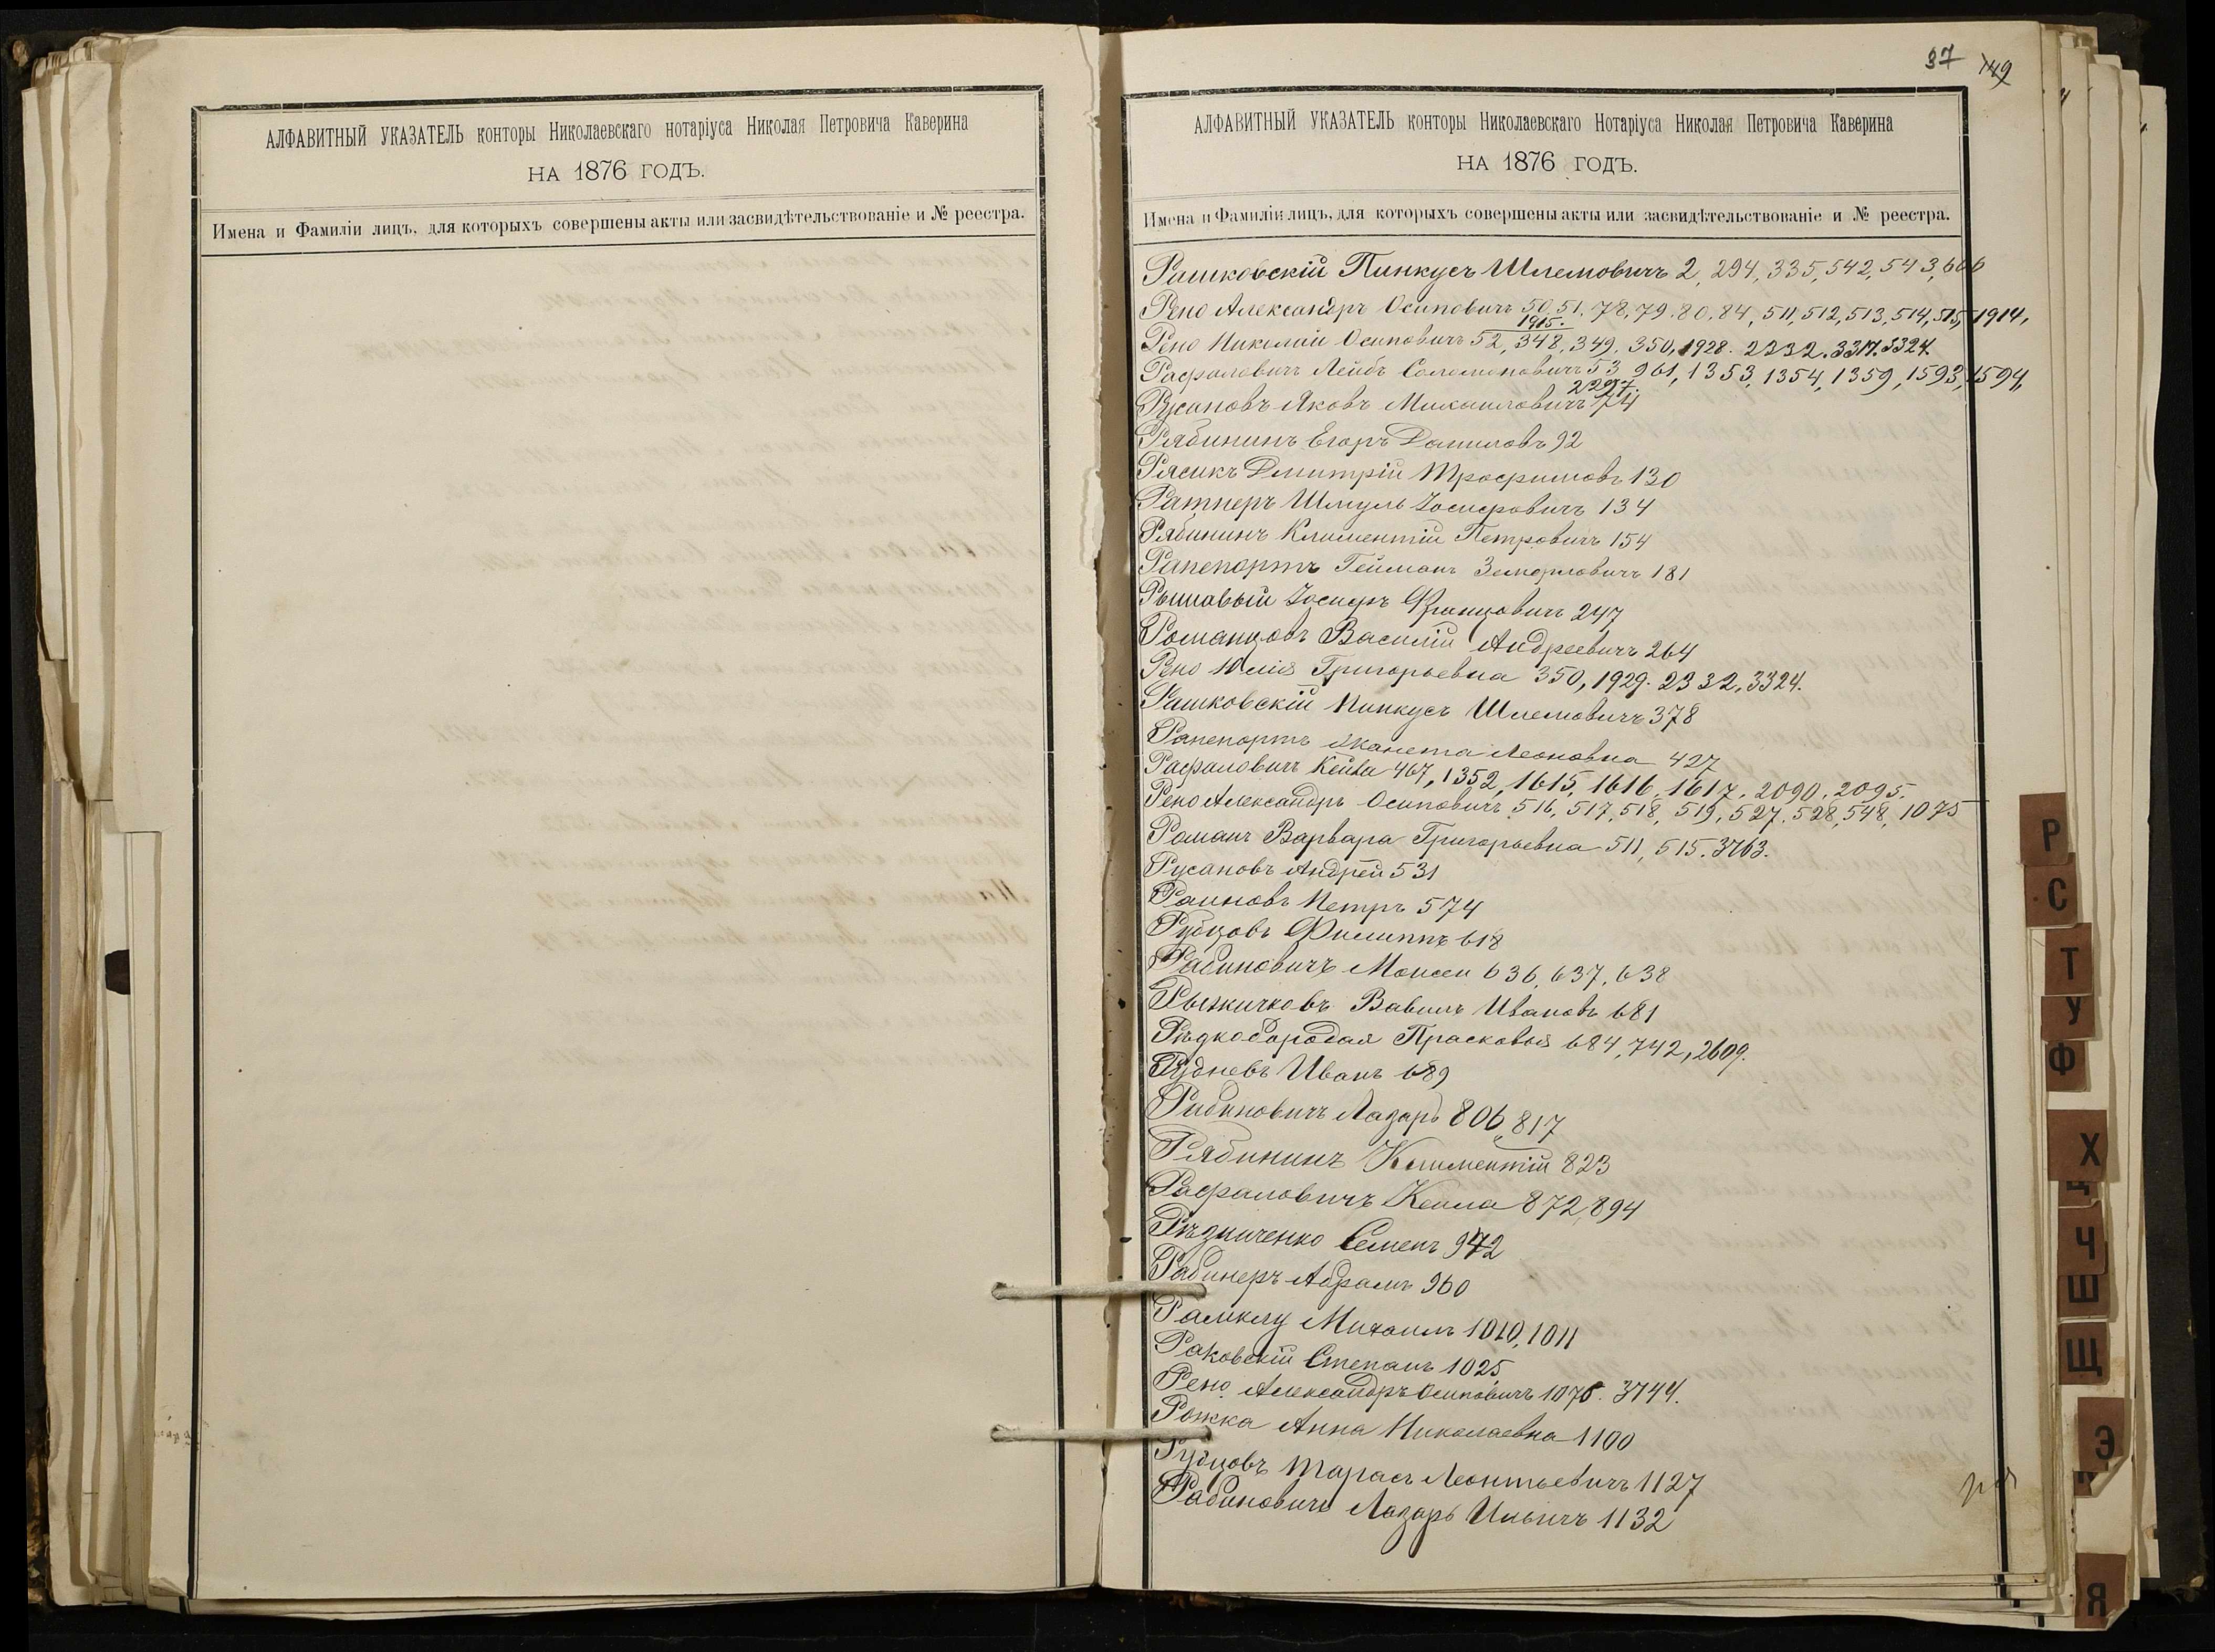 АЛФАВИТНЫЙ УКАЗАТЕЛЬ конторы Николаевскаго нотаріуса Николая Петровича Каверина
НА 1876 ГОДЪ.
Имена и Фамиліи лицъ, для которыхъ совершены акты или засвидѣтельствованіе и № реестра.
37 149
АЛФАВИТНЫЙ УКАЗАТЕЛЬ конторы Николаевскаго Нотаріуса Николая Петровича Каверина
НА 1876 ГОДЪ.
Имена и Фамиліи лицъ, для которыхъ совершены акты или засвидѣтельствованіе и № реестра.
Рашковскій Пинкусъ Шлемовичъ 2, 294, 335, 542, 543, 666
Рено Александръ Осиповичъ 50, 51, 78, 79, 80, 84, 511, 512, 513, 514, 515, 1914,
1915.
Рено Николай Осиповичъ 52, 348, 349, 350, 1928. 2332. 3317. 3324.
Рафаловичъ Лейбъ Соломоновичъ 53 961, 1353, 1354, 1359, 1593, 1594,
2297.
Русановъ Яковъ Михаиловичъ 74
Рябининъ Егоръ Даниловъ 92
Рясикъ Дмитрій Трофимовъ 130
Ратнеръ Шмуль Іосифовичъ 134
Рябининъ Климентій Петровичъ 154
Рапепортъ Гейманъ 181
Іосифъ Францовичъ 247
Романцовъ Василій Андреевичъ 264
Рено Юлія Григорьевна 350, 1929. 2332, 3324.
Рашковскій Пинкусъ Шлемовичъ 378
Рапепортъ Жанета Леоновна 427
Рафаловичъ Кейла 467, 1352, 1615, 1616, 1617, 2090, 2095.
Рено Александръ Осиповичъ 516, 517, 518, 519, 527, 528, 548, 1075
Романъ Варвара Григорьевна 511, 515. 3763.
Русановъ Андрей 531
Раиновъ Петръ 574
Рубцовъ Филиппъ 618
Рабиновичъ Моисей 636, 637, 638
Рыжичковъ Вавилъ Ивановъ 681
Рѣдкобородая Прасковья 684, 742, 2609.
Рудневъ Иванъ 689
Рабиновичъ Лазарь 806, 817
Рябининъ Климентій 823
Рафаловичъ Кеила 872, 894
Рѣзниченко Семенъ 942
Рабинеръ Абрамъ 960
Михаилъ 1010, 1011
Раковскій Степанъ 1025
Рено Александръ Осиповичъ 1075. 3744.
Рожка Анна Николаевна 1100
Рубцовъ Тарасъ Леонтьевичъ 1127
Рабиновичъ Лазарь Ильичъ 1132
Р
С
Т
У
Ф
Х
Ц
Ч
Ш
Щ
Э
Я